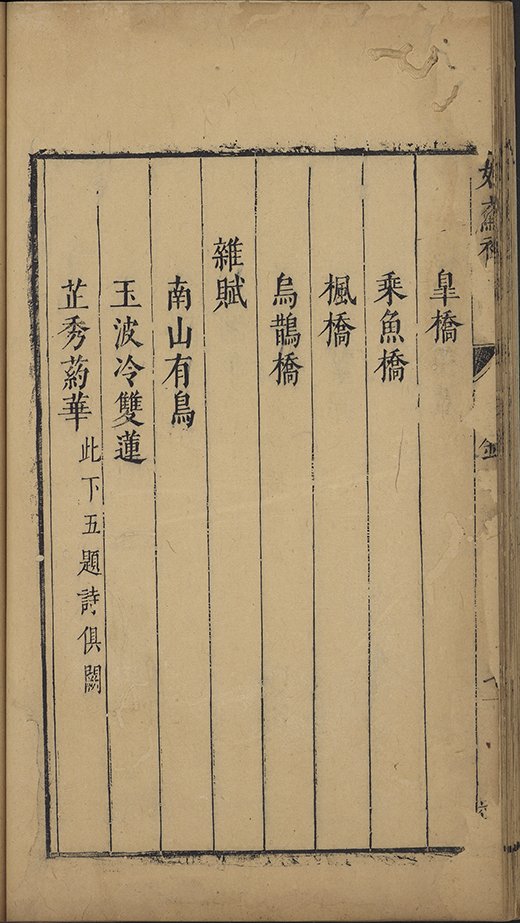 皐橋
乘魚橋
楓橋
烏鵲橋
雜賦
南山有鳥
玉波冷雙蓮
芷秀葯華此下五題詩俱闕